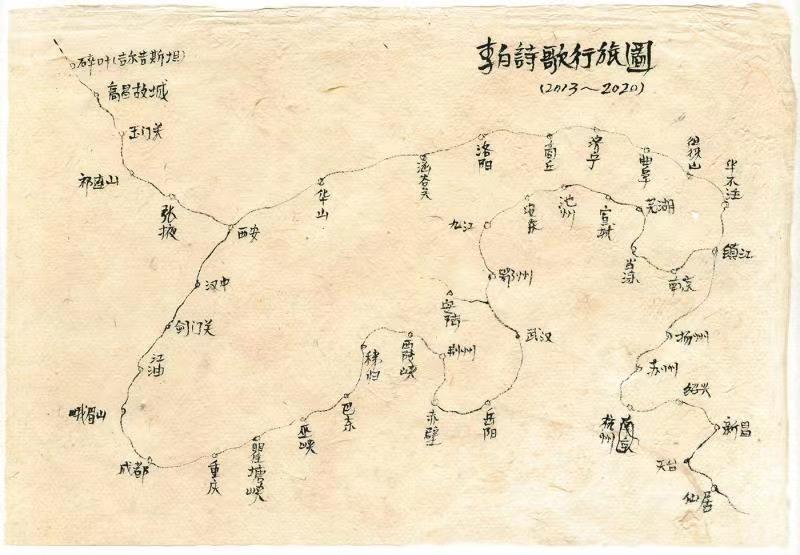 李白詩歌行旅圖
(2013～2020)
碎叶(吉尔吉斯坦)
高昌故城
玉门关
祁连山
张掖
西安
华山
函谷关
洛阳
商丘
济宁
曲阜
徂徕山
华不注
镇江
九江
安庆
池州
宣城
芜湖
当涂
南京
汉中
鄂州
安陆
武汉
剑门关
江油
秭归
西陵峡
荆州
扬州
苏州
峨眉山
巴东
赤壁
岳阳
绍兴
杭州
新昌
成都
重庆
瞿塘峡
巫峡
天台
仙居